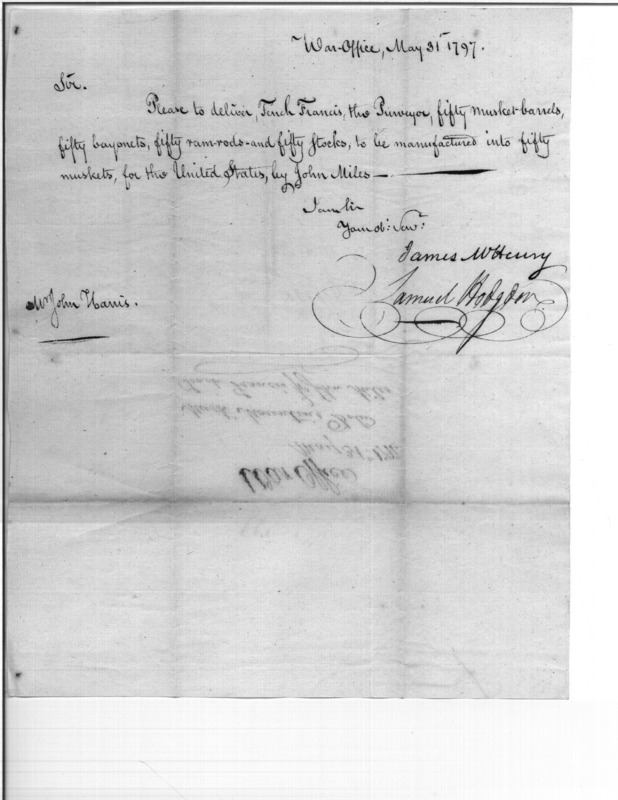 War-Office, May 31st 1797.
Sir.
Please to deliver, Tench Francis, the Purveyor, fifty musket-barrels,
fifty bayonets, fifty ram-rods-and fifty stocks, to be manufactured into fifty
muskets, for the United States, by John Miles—
I am Sir
Your ob: Servt:
James McHenry
Samuel Hodgdon
Mr John Harris.
War Office
May 31st 179